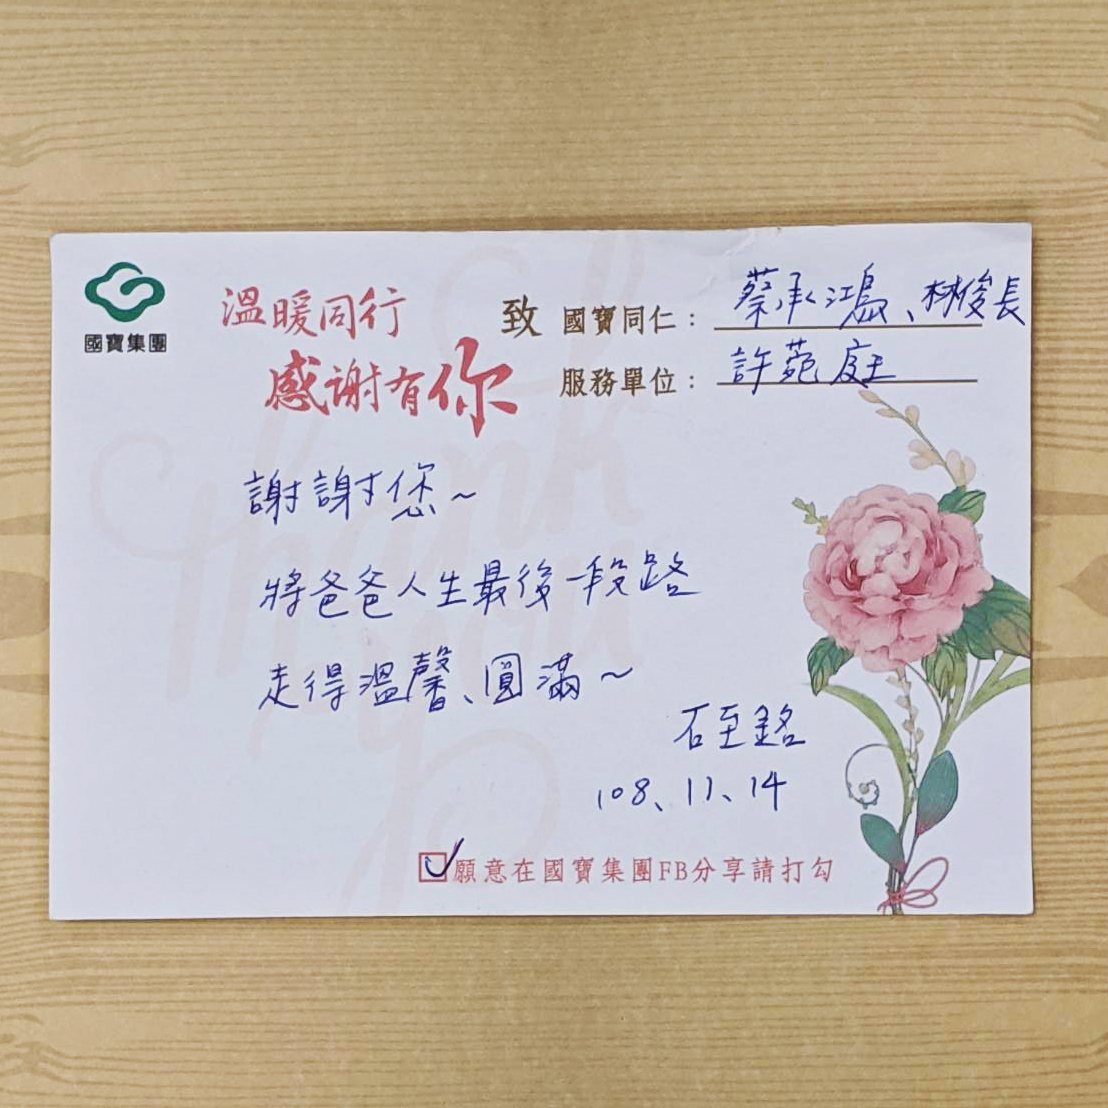 國寶集團
溫暖同行
感謝有你
致 國寶同仁：蔡承鴻、林俊長
服務單位：許苑庭
謝謝您～
將爸爸人生最後一段路
走得溫馨、圓滿～
石至銘
108、11、14
願意在國寶集團FB分享請打勾
Thank you